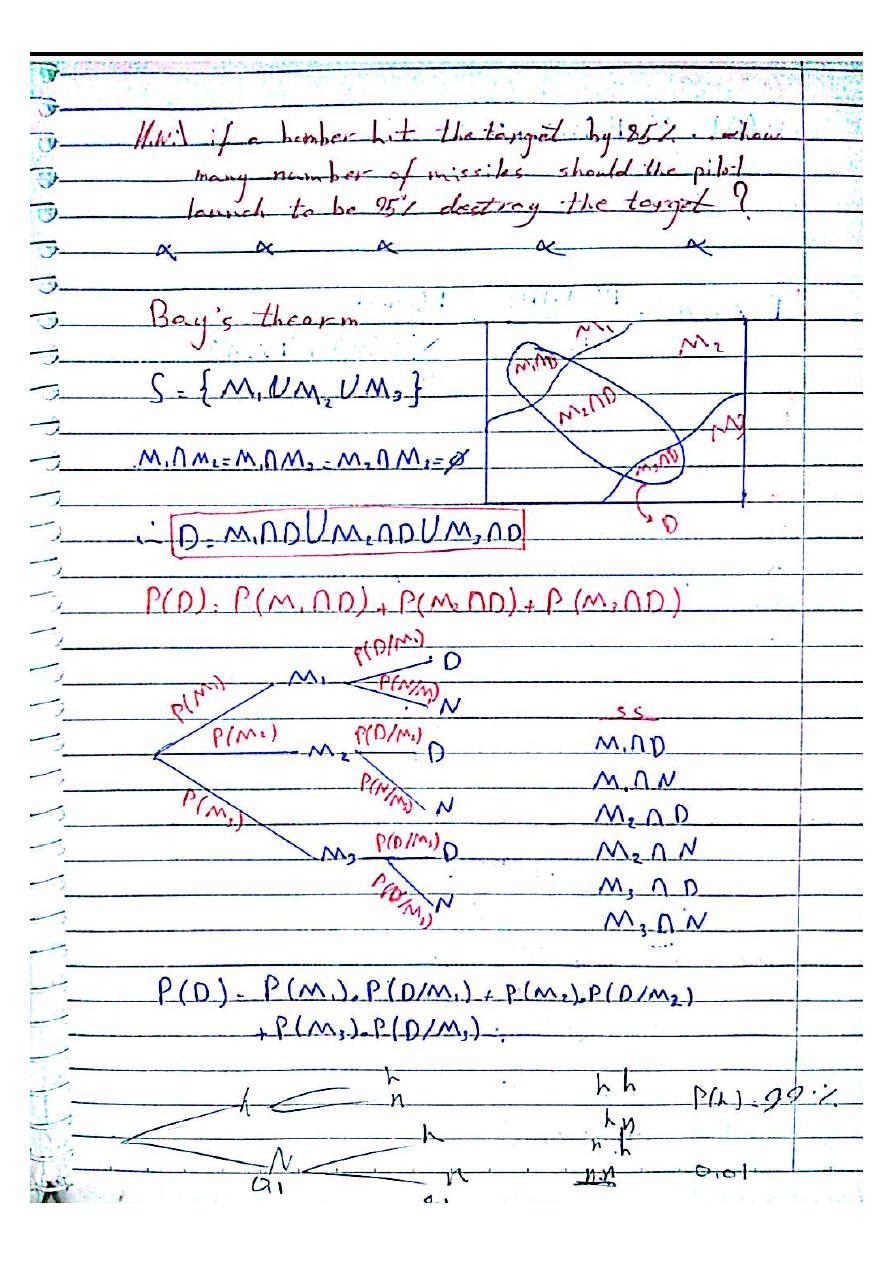 H.W\ if a bomber hit the target by 85% . how
many number of missiles should the pilot
launch to be 95% destray the target ?
Bay's theorm
S = { M₁ U M₂ U M₃ }
M₁∩M₂=M₁∩M₃=M₂∩M₃=∅
M₁
M₂
M₃
M₁∩D
M₂∩D
M₃∩D
D
∴ D = M₁∩D U M₂∩D U M₃∩D
P(D) = P(M₁∩D) + P(M₂∩D) + P(M₃∩D)
P(M₁) M₁ P(D/M₁) D
P(N/M₁) N
P(M₂) M₂ P(D/M₂) D
P(N/M₂) N
P(M₃) M₃ P(D/M₃) D
P(D/M₃) N
s s
M₁∩D
M₁∩N
M₂∩D
M₂∩N
M₃∩D
M₃∩N
P(D) = P(M₁).P(D/M₁) + P(M₂).P(D/M₂)
+ P(M₃).P(D/M₃)
h h h h P(h) = 99%
n h n
N h n h
0.1 n n.n 0.01